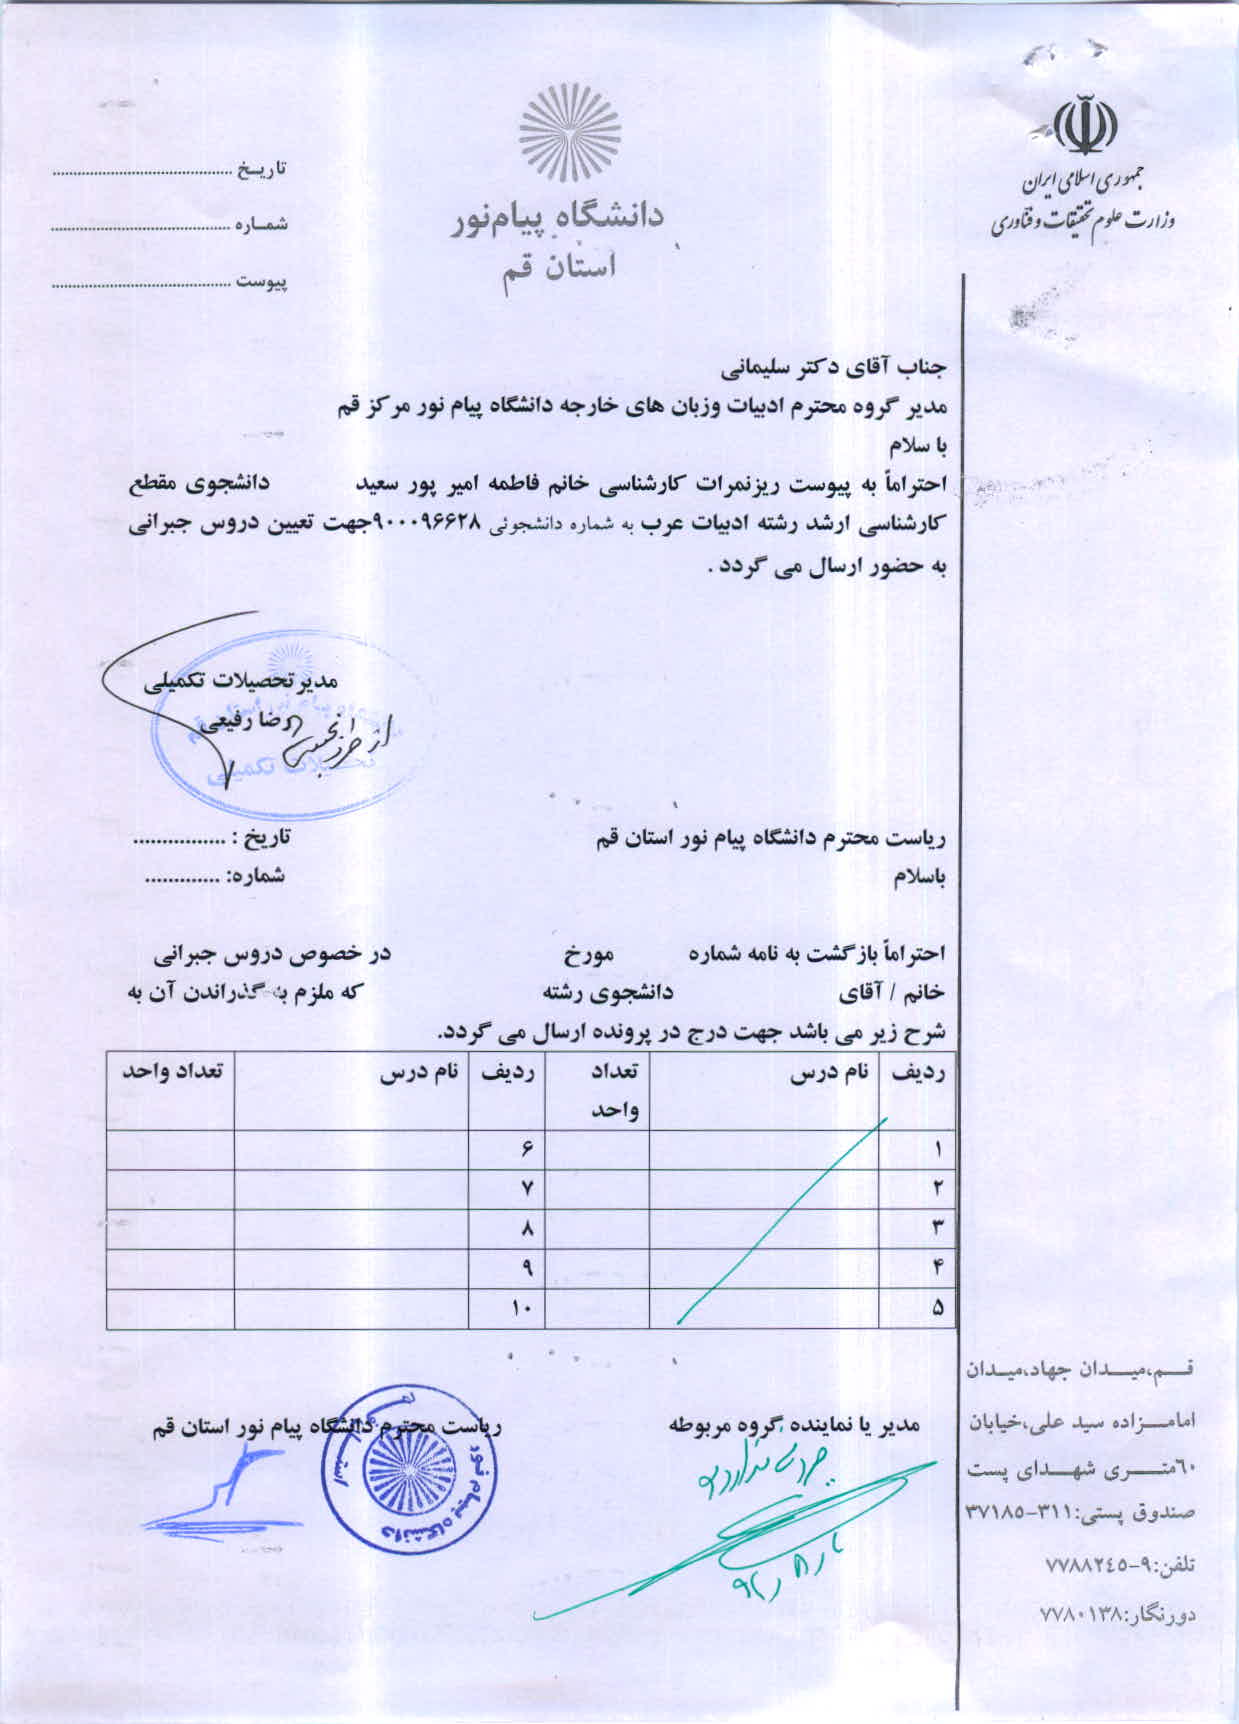 جمهوری اسلامی ایران
وزارت علوم تحقیقات و فناوری
دانشگاه پیام‌نور
استان قم
تاریـخ ........................................
شمـاره ........................................
پیوست ........................................
جناب آقای دکتر سلیمانی
مدیر گروه محترم ادبیات وزبان های خارجه دانشگاه پیام نور مرکز قم
با سلام
احتراماً به پیوست ریزنمرات کارشناسی خانم فاطمه امیر پور سعید دانشجوی مقطع
کارشناسی ارشد رشته ادبیات عرب به شماره دانشجوئی ۹۰۰۰۹۶۶۲۸جهت تعیین دروس جبرانی
به حضور ارسال می گردد .
مدیرتحصیلات تکمیلی
رضا رفیعی
از طرف
تحصیلات تکمیلی
ریاست محترم دانشگاه پیام نور استان قم تاریخ : ................
باسلام شماره: .............
احتراماً بازگشت به نامه شماره مورخ در خصوص دروس جبرانی
خانم / آقای دانشجوی رشته که ملزم به گذراندن آن به
شرح زیر می باشد جهت درج در پرونده ارسال می گردد.
ردیف نام درس تعداد واحد ردیف نام درس تعداد واحد
۱ ۶
۲ ۷
۳ ۸
۴ ۹
۵ ۱۰
مدیر یا نماینده گروه مربوطه ریاست محترم دانشگاه پیام نور استان قم
دانشگاه پیام نور
استان قم
قــم،میـــدان جهاد،میـدان
امامـــزاده سید علی،خیابان
٦٠متـــری شهـــدای پست
صندوق پستی:۳۱۱-۳۷۱۸۵
تلفن:۹-۷۷۸۸۲٤۵
دورنگار:۷۷۸۰۱۳۸